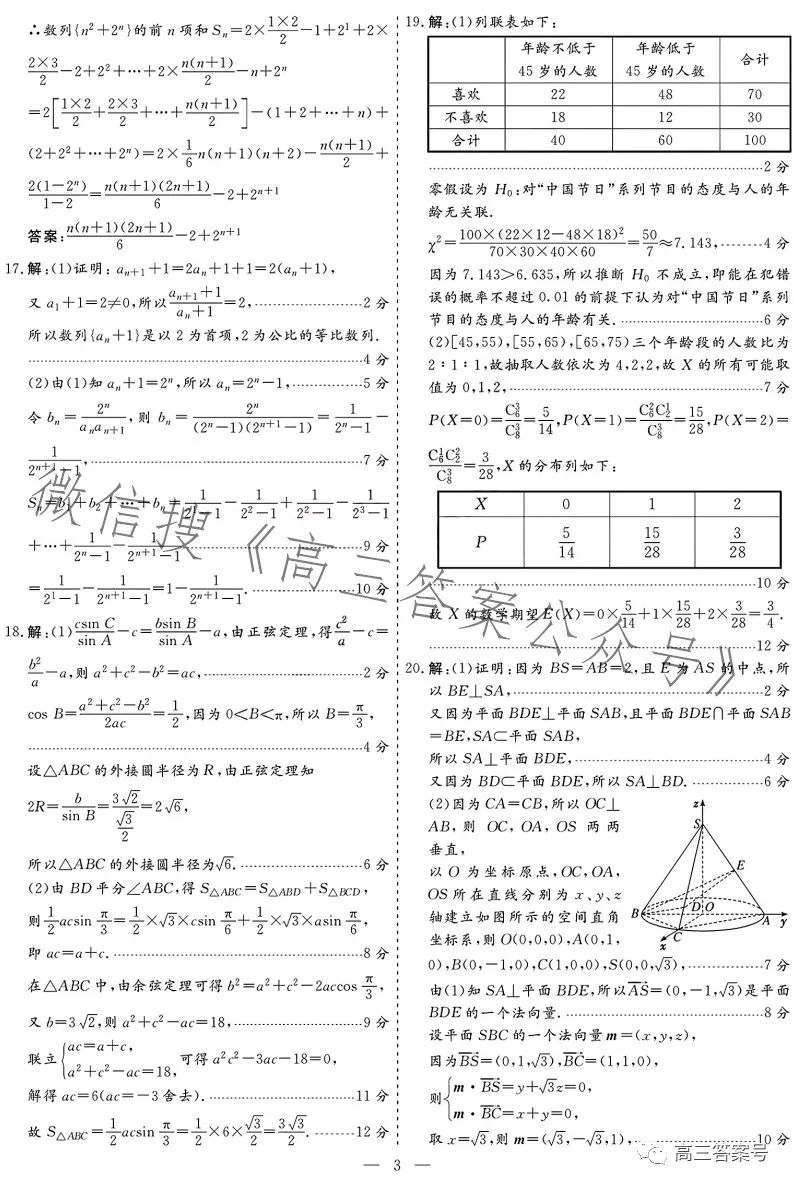 ∴数列{n²+2ⁿ}的前 n 项和 Sₙ=2×(1×2)/2−1+2¹+2×
(2×3)/2−2+2²+…+2×n(n+1)/2−n+2ⁿ
=2[(1×2)/2+(2×3)/2+…+n(n+1)/2]−(1+2+…+n)+
(2+2²+…+2ⁿ)=2×1/6 n(n+1)(n+2)−n(n+1)/2+
2(1−2ⁿ)/(1−2)=n(n+1)(2n+1)/6−2+2ⁿ⁺¹
答案:n(n+1)(2n+1)/6−2+2ⁿ⁺¹
17.解:(1)证明: aₙ₊₁+1=2aₙ+1+1=2(aₙ+1),
又 a₁+1=2≠0,所以(aₙ₊₁+1)/(aₙ+1)=2,……2 分
所以数列{aₙ+1}是以 2 为首项,2 为公比的等比数列.
……4 分
(2)由(1)知 aₙ+1=2ⁿ,所以 aₙ=2ⁿ−1,……5 分
令 bₙ=2ⁿ/(aₙaₙ₊₁),则 bₙ=2ⁿ/((2ⁿ−1)(2ⁿ⁺¹−1))=1/(2ⁿ−1)−
1/(2ⁿ⁺¹−1),……7 分
Sₙ=b₁+b₂+…+bₙ=1/(2¹−1)−1/(2²−1)+1/(2²−1)−1/(2³−1)
+…+1/(2ⁿ−1)−1/(2ⁿ⁺¹−1)……9 分
=1/(2¹−1)−1/(2ⁿ⁺¹−1)=1−1/(2ⁿ⁺¹−1).……10 分
18.解:(1)csin C/sin A−c=bsin B/sin A−a,由正弦定理,得c²/a−c=
b²/a−a,则 a²+c²−b²=ac,……2 分
cos B=(a²+c²−b²)/2ac=1/2,因为 0<B<π,所以 B=π/3,
……4 分
设△ABC 的外接圆半径为 R,由正弦定理知
2R=b/sin B=3√2/(√3/2)=2√6,
所以△ABC 的外接圆半径为√6.……6 分
(2)由 BD 平分∠ABC,得 S△ABC=S△ABD+S△BCD,
则1/2 acsin π/3=1/2×√3×csin π/6+1/2×√3×asin π/6,
即 ac=a+c.……8 分
在△ABC 中,由余弦定理可得 b²=a²+c²−2accos π/3,
又 b=3√2,则 a²+c²−ac=18,……9 分
联立{ac=a+c, a²+c²−ac=18,可得 a²c²−3ac−18=0,
解得 ac=6(ac=−3 舍去).……11 分
故 S△ABC=1/2 acsin π/3=1/2×6×√3/2=3√3/2.……12 分
19.解:(1)列联表如下:
年龄不低于45 岁的人数 年龄低于45 岁的人数 合计
喜欢 22 48 70
不喜欢 18 12 30
合计 40 60 100
……2 分
零假设为 H₀:对“中国节日”系列节目的态度与人的年
龄无关联.
χ²=100×(22×12−48×18)²/(70×30×40×60)=50/7≈7.143,……4 分
因为 7.143>6.635,所以推断 H₀ 不成立,即能在犯错
误的概率不超过 0.01 的前提下认为对“中国节日”系列
节目的态度与人的年龄有关.……6 分
(2)[45,55),[55,65),[65,75)三个年龄段的人数比为
2∶1∶1,故抽取人数依次为 4,2,2,故 X 的所有可能取
值为 0,1,2,……7 分
P(X=0)=C₆³/C₈³=5/14,P(X=1)=C₆²C₂¹/C₈³=15/28,P(X=2)=
C₆¹C₂²/C₈³=3/28,X 的分布列如下:
X 0 1 2
P 5/14 15/28 3/28
……10 分
故 X 的数学期望 E(X)=0×5/14+1×15/28+2×3/28=3/4.
……12 分
20.解:(1)证明:因为 BS=AB=2,且 E 为 AS 的中点,所
以 BE⊥SA,……2 分
又因为平面 BDE⊥平面 SAB,且平面 BDE∩平面 SAB
=BE,SA⊂平面 SAB,
所以 SA⊥平面 BDE,……4 分
又因为 BD⊂平面 BDE,所以 SA⊥BD.……6 分
(2)因为 CA=CB,所以 OC⊥
AB,则 OC,OA,OS 两两
垂直,
以 O 为坐标原点,OC,OA,
OS 所在直线分别为 x、y、z
轴建立如图所示的空间直角
坐标系,则 O(0,0,0),A(0,1,
z
S
E
B
D
O
A
y
C
x
0),B(0,−1,0),C(1,0,0),S(0,0,√3),……7 分
由(1)知 SA⊥平面 BDE,所以AS→=(0,−1,√3)是平面
BDE 的一个法向量.……8 分
设平面 SBC 的一个法向量 m=(x,y,z),
因为BS→=(0,1,√3),BC→=(1,1,0),
则{m·BS→=y+√3z=0,
m·BC→=x+y=0,
取 x=√3,则 m=(√3,−√3,1),……10 分
— 3 —
微信搜《高三答案公众号》
高三答案号